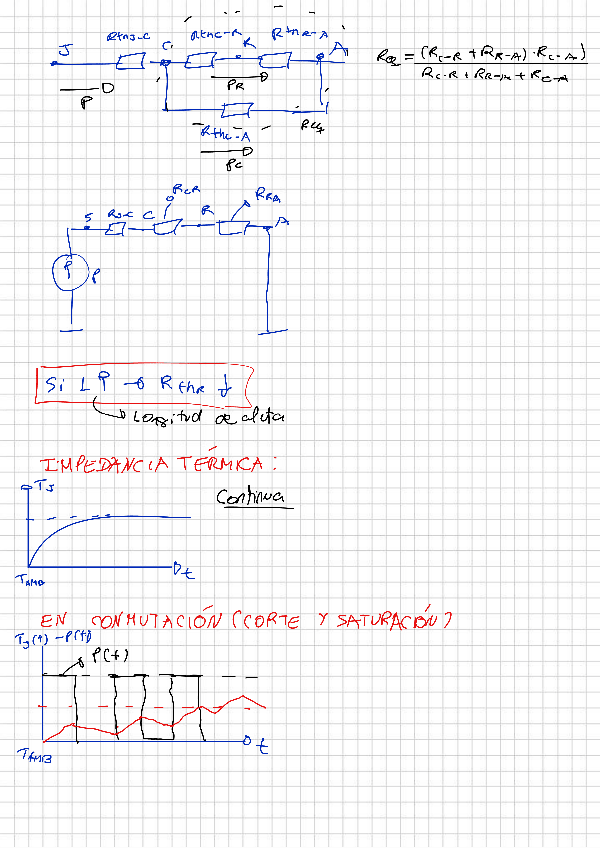 Rthj-c C Rthc-R R RthR-A A
J
Req = (Rc-R + RR-A) · Rc-A)
Rc-R + RR-A + Rc-A
P
PR
Rthc-A
Req
Pc
RCR
RRA
J RJC C R A
P P
Si L ↑ → RthR ↓
→ Longitud de aleta
IMPEDANCIA TÉRMICA:
TJ
Continua
TAMB
t
EN CONMUTACIÓN (CORTE Y SATURACIÓN)
TJ(t) - P(t)
P(t)
TAMB
t